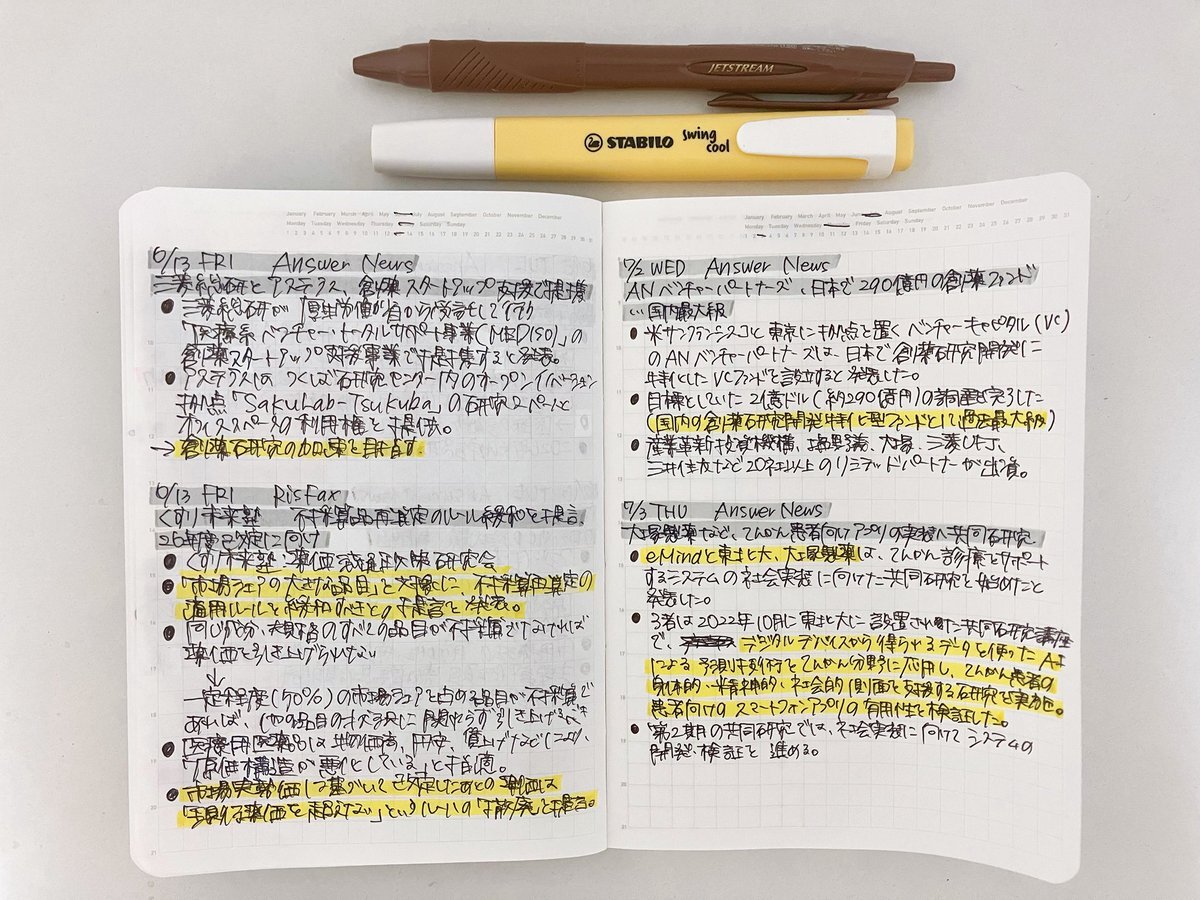 JETSTREAM
STABILO swing cool
January February March April May July August September October November December
Monday Tuesday Wednesday Thursday Saturday Sunday
6/13 FRI Answer News
三菱総研とアステラス、創薬スタートアップ支援で提携
● 三菱総研が厚生労働省から受託している
「医療系ベンチャー・トータルサポート事業(MEDISO)」の
創薬スタートアップ支援事業で提携すると発表。
● アステラスは つくば研究センター内のオープンイノベーション
拠点「SakuLab-Tsukuba」の研究スペースと
オフィススペースの利用権を提供。
→ 創薬研究の加速を目指す.
6/13 FRI RisFax
くすり未来塾 不採算品再算定のルール緩和を提言、
26年度改定に向け
● くすり未来塾:薬価流通政策研究会
● 「市場シェアの大きな品目」を対象に、不採算再算定の
適用ルールを緩和すべきとの提言を発表。
● 同じ成分、規格のすべての品目が不採算でなければ
薬価を引き上げられない
↓
一定程度(50%)の市場シェアを占める品目が不採算で
あれば、他の品目の状況に関わらず引き上げるべき
● 医療用医薬品は物価高、円安、賃上げなどにより、
「原価構造が悪化している」と指摘。
● 市場実勢価に基づいて改定したあとの薬価は
「現行薬価を超えない」というルールの「撤廃」を提言。
21
January February March April May August September October November December
Monday Tuesday Wednesday Friday Saturday Sunday
7/2 WED Answer News
ANベンチャーパートナーズ、日本で290億円の創薬ファンド
…国内最大級
● 米サンフランシスコと東京に拠点を置くベンチャーキャピタル(VC)
のANベンチャーパートナーズは、日本で創薬研究開発に
特化したVCファンドを設立すると発表した。
● 目標としていた2億ドル(約290億円)の調達を完了した
(国内の創薬研究開発特化型ファンドとして過去最大級)
● 産業革新投資機構、塩野義、大塚、三菱UFJ、
三井住友など20社以上のリミテッドパートナーが出資。
7/3 THU Answer News
大塚製薬など、てんかん患者向けアプリの実装へ共同研究
● eMindと東北大、大塚製薬は、てんかん診療をサポート
するシステムの社会実装に向けた共同研究を始めたと
発表した。
● 3者は2022年10月に東北大に設置された共同研究講座
で、デジタルデバイスから得られるデータを使ったAI
による予測技術をてんかん分野に応用し、てんかん患者の
身体的・精神的・社会的側面を支援する研究を実施。
患者向けのスマートフォンアプリの有用性を検証した。
● 第2期の共同研究では、社会実装に向けてシステムの
開発・検証を進める。
21